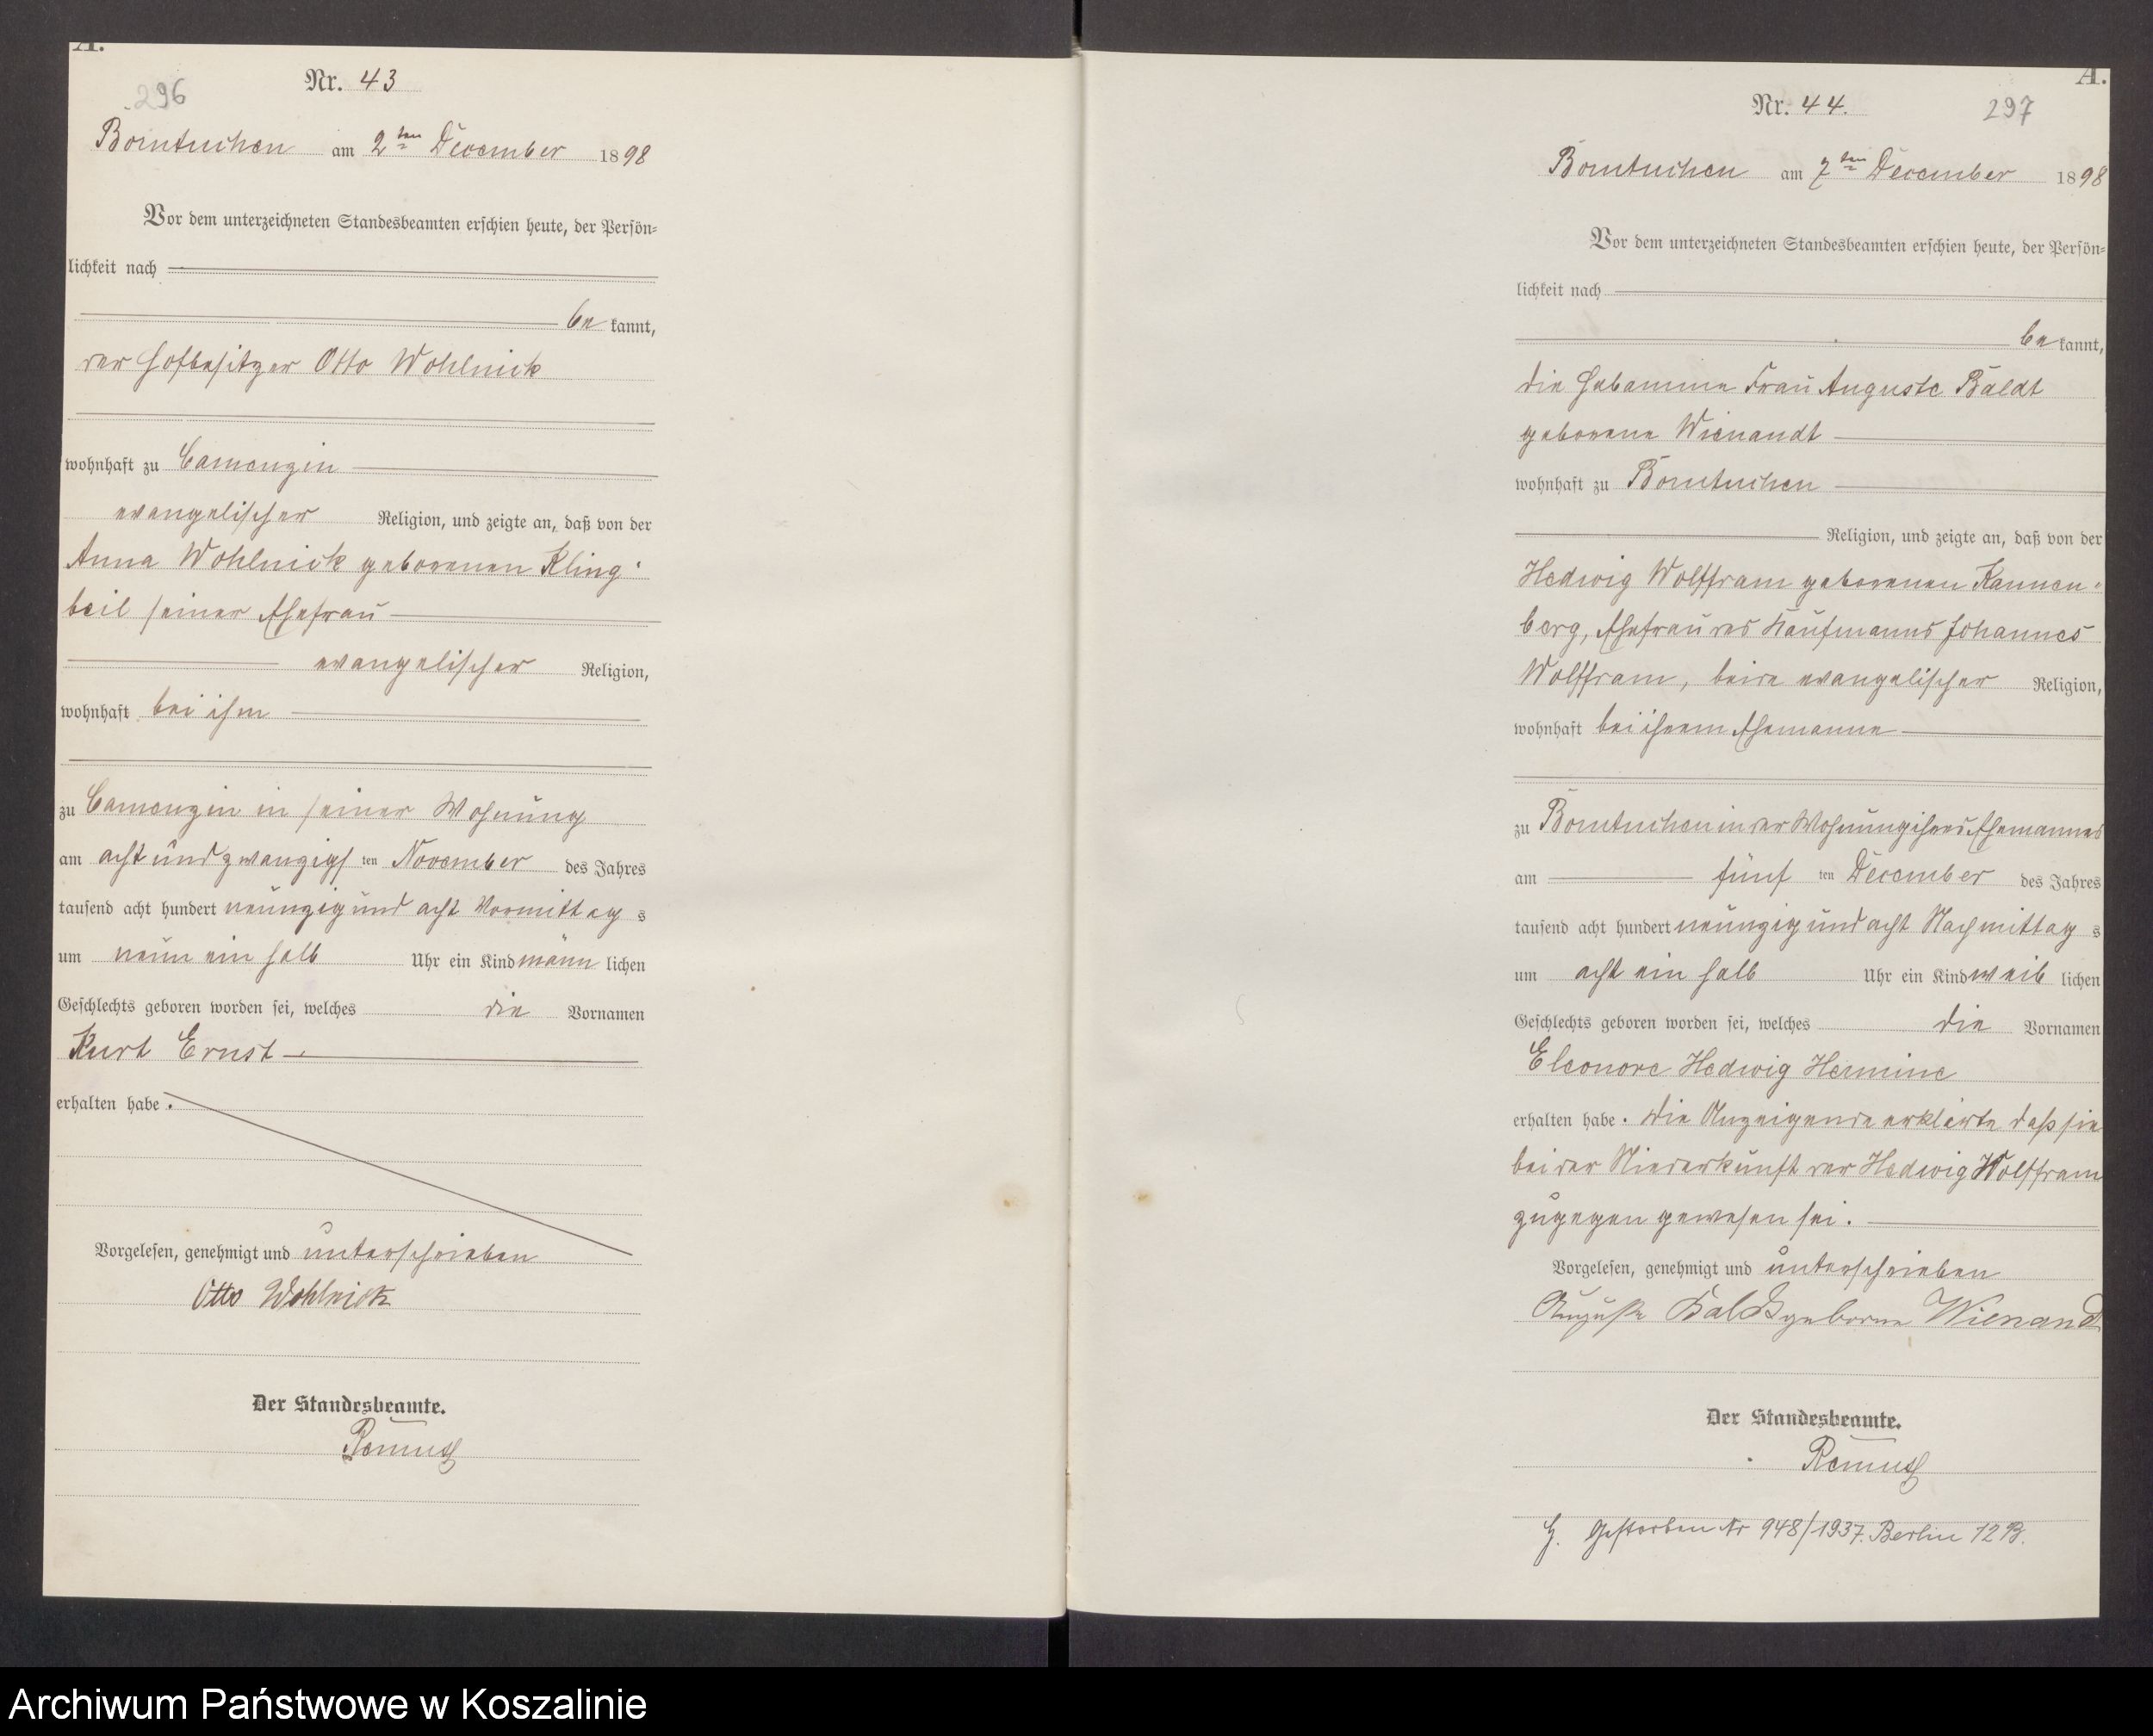 A.
296
Nr. 43
Borntuchen am 2ten December 1898
Vor dem unterzeichneten Standesbeamten erschien heute, der Persön-
lichkeit nach
bekannt,
der Hofbesitzer Otto Wohlnick
wohnhaft zu Camenzin
evangelischer Religion, und zeigte an, daß von der
Anna Wohlnick geborenen Kling-
beil seiner Ehefrau
evangelischer Religion,
wohnhaft bei ihm
zu Camenzin in seiner Wohnung
am acht und zwanzigsten November des Jahres
tausend acht hundert neunzig und acht Vormittags
um neun ein halb Uhr ein Kind männlichen
Geschlechts geboren worden sei, welches die Vornamen
Kurt Ernst
erhalten habe.
Vorgelesen, genehmigt und unterschrieben
Otto Wohlnick
Der Standesbeamte.
Remus
A.
Nr. 44. 297
Borntuchen am 7ten December 1898
Vor dem unterzeichneten Standesbeamten erschien heute, der Persön-
lichkeit nach
bekannt,
die Hebamme Frau Auguste Baldt
geborene Wienandt
wohnhaft zu Borntuchen
Religion, und zeigte an, daß von der
Hedwig Wolffram geborenen Kannen-
berg, Ehefrau des Kaufmanns Johannes
Wolffram, beide evangelischer Religion,
wohnhaft bei ihrem Ehemanne
zu Borntuchen in der Wohnung ihres Ehemannes
am fünften December des Jahres
tausend acht hundert neunzig und acht Nachmittags
um acht ein halb Uhr ein Kind weiblichen
Geschlechts geboren worden sei, welches die Vornamen
Eleonore Hedwig Hermine
erhalten habe. Die Anzeigende erklärte daß sie
bei der Niederkunft der Hedwig Wolffram
zugegen gewesen sei.
Vorgelesen, genehmigt und unterschrieben
Auguste Baldt geborne Wienand
Der Standesbeamte.
Remus
Gestorben Nr 948/1937. Berlin 12 B.
Archiwum Państwowe w Koszalinie